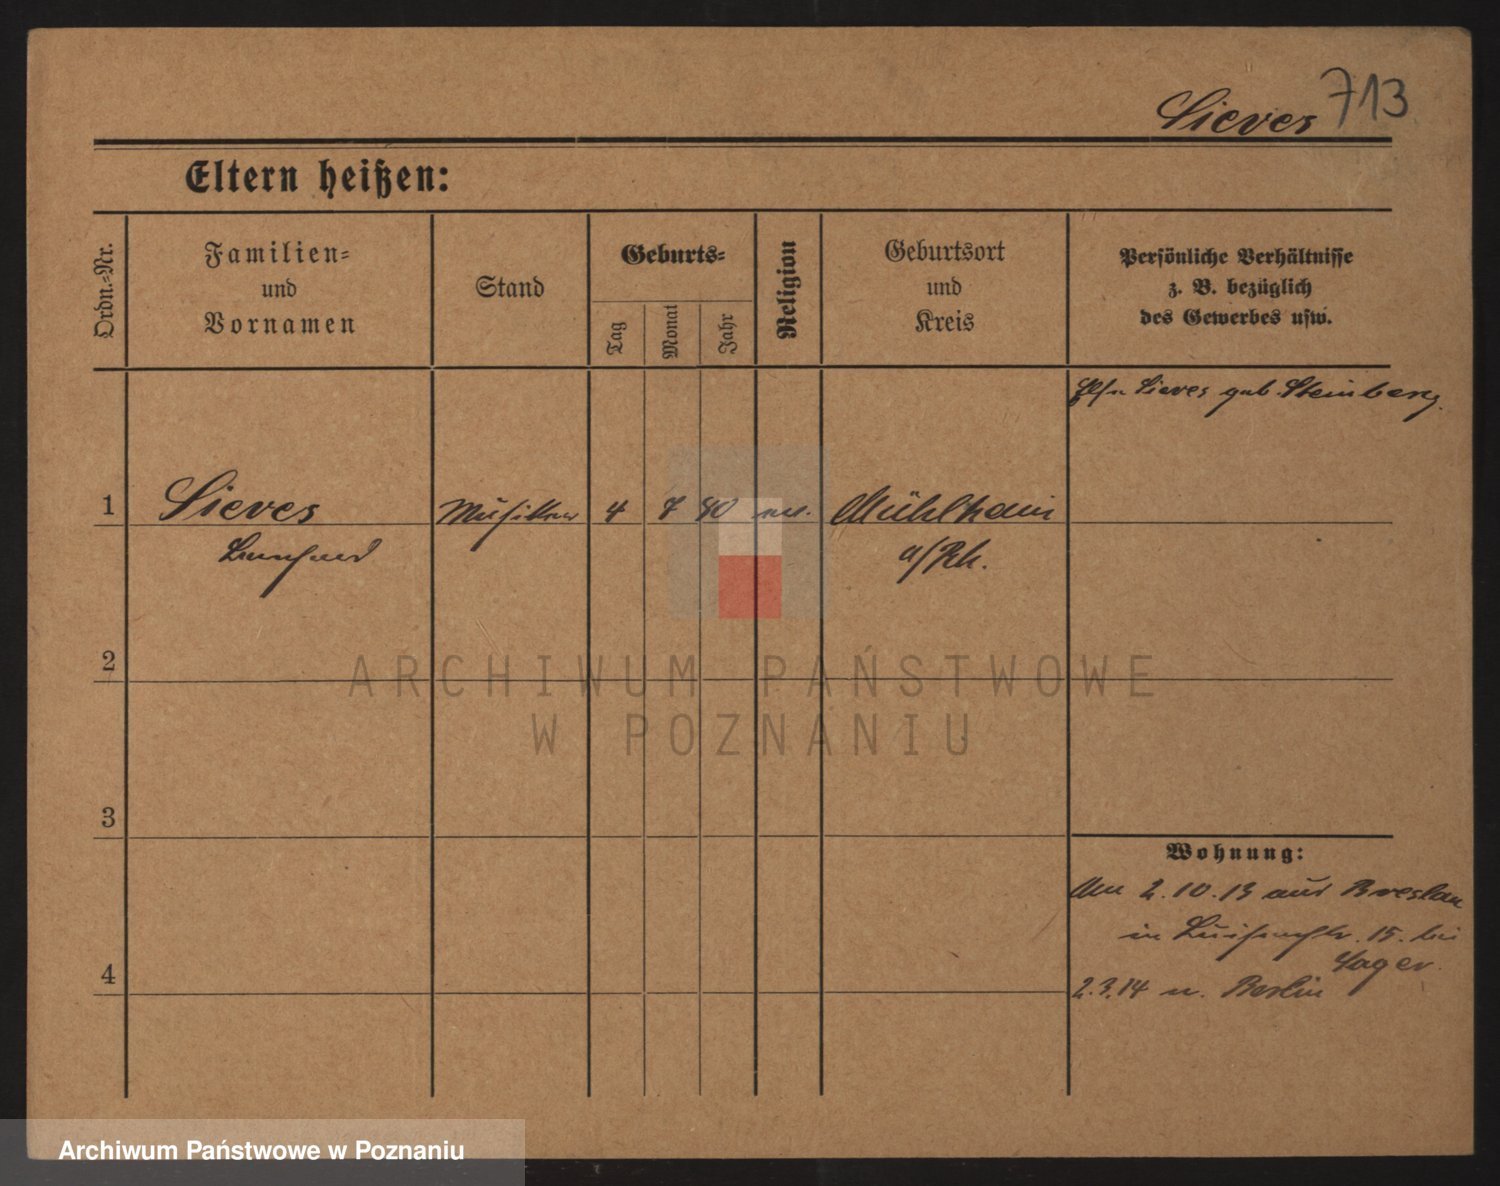 713
Sieves
Eltern heißen:
Ordn.-Nr.
Familien-
und
Vornamen
Stand
Geburts-
Tag
Monat
Jahr
Religion
Geburtsort
und
Kreis
Persönliche Verhältnisse
z. B. bezüglich
des Gewerbes usw.
Sieves geb. Steinberg.
1
Sieves
Musiker
4
7
ev.
Mühlheim
a/Rh.
2
3
4
Wohnung:
Am 2.10.13 aus Breslau
in Luisenstr. 15. bei
Sager
2.3.14 n. Berlin
ARCHIWUM PAŃSTWOWE
W POZNANIU
Archiwum Państwowe w Poznaniu